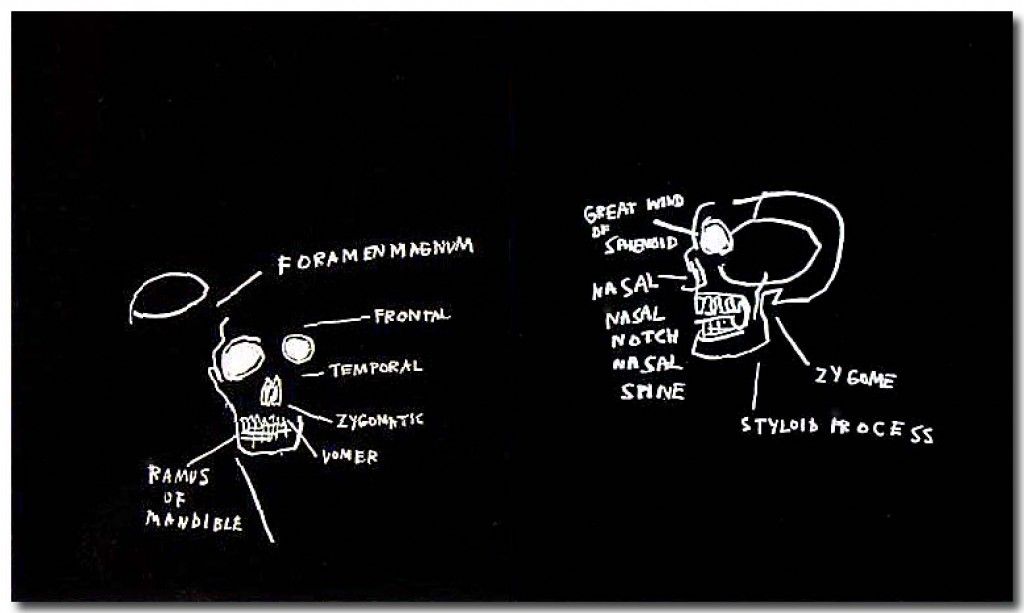 FORAMEN MAGNUM
FRONTAL
TEMPORAL
ZYGOMATIC
VOMER
RAMUS
OF
MANDIBLE
GREAT WIND
OF
SPHENOID
NASAL
NASAL
NOTCH
NASAL
SPINE
ZYGOME
STYLOID PROCESS